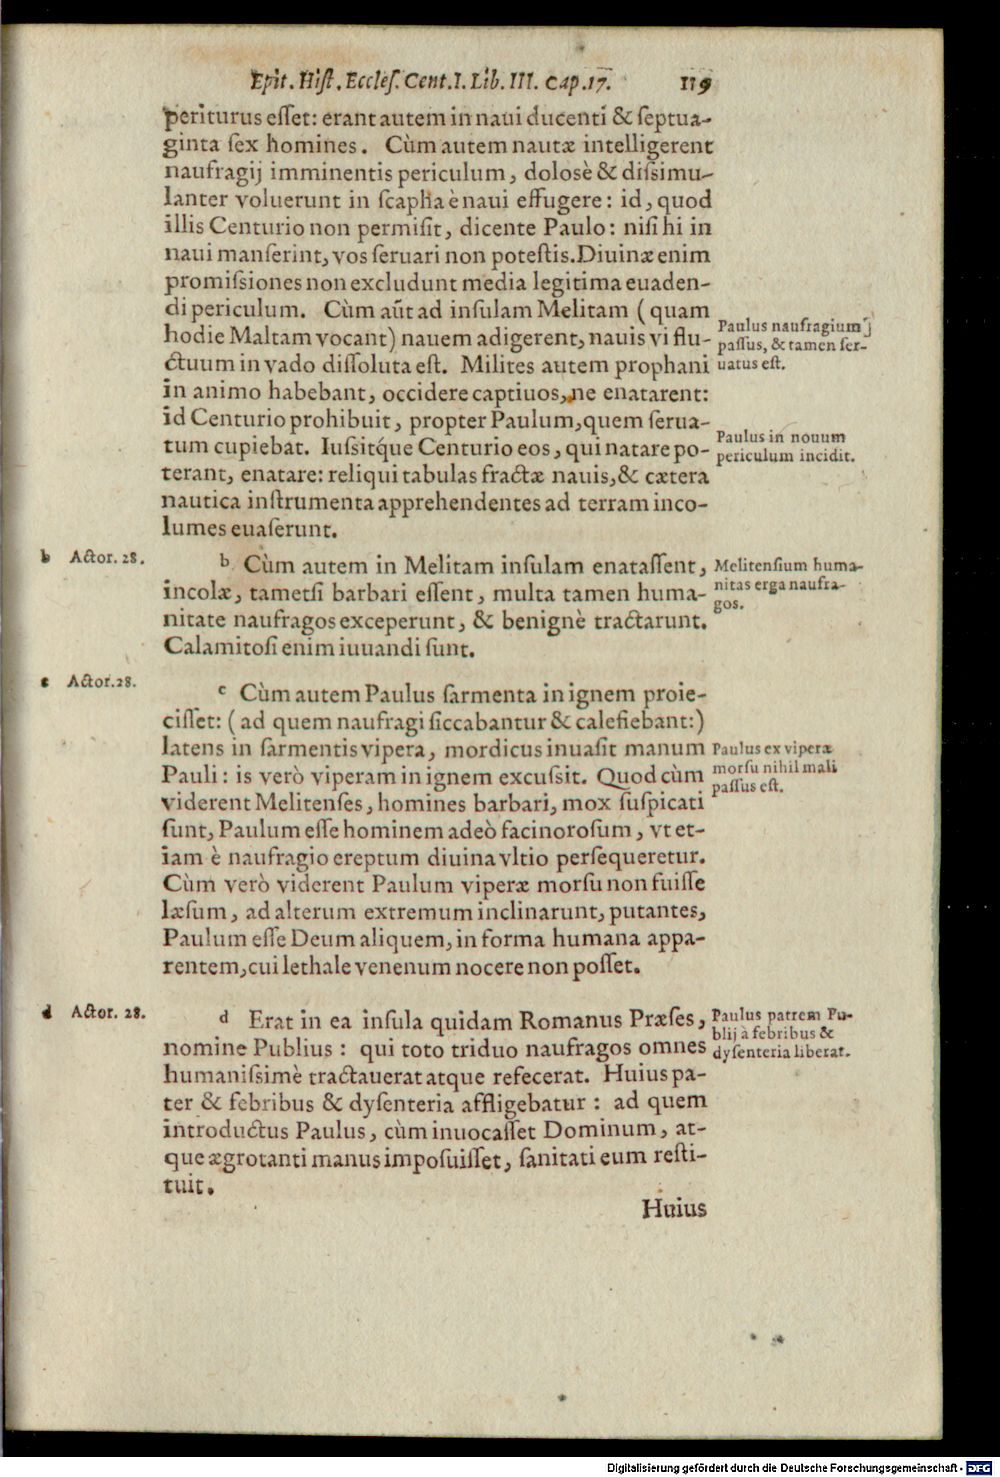 Epit. Hiſt. Eccleſ. Cent. I. Lib. III. Cap. 17. 119
periturus eſſet: erant autem in naui ducenti & ſeptua-
ginta ſex homines. Cùm autem nautæ intelligerent
naufragij imminentis periculum, dolosè & diſsimu-
lanter voluerunt in ſcapha è naui effugere: id, quod
illis Centurio non permiſit, dicente Paulo: niſi hi in
naui manſerint, vos ſeruari non poteſtis. Diuinæ enim
promiſsiones non excludunt media legitima euaden-
di periculum. Cùm aūt ad inſulam Melitam (quam
hodie Maltam vocant) nauem adigerent, nauis vi flu-
ctuum in vado diſſoluta eſt. Milites autem prophani
in animo habebant, occidere captiuos, ne enatarent:
id Centurio prohibuit, propter Paulum, quem ſerua-
tum cupiebat. Iuſsitq́ue Centurio eos, qui natare po-
terant, enatare: reliqui tabulas fractæ nauis, & cætera
nautica inſtrumenta apprehendentes ad terram inco-
lumes euaſerunt.
Paulus naufragium
paſſus, & tamen ſer-
uatus eſt.
Paulus in nouum
periculum incidit.
b Actor. 28.
b Cùm autem in Melitam inſulam enataſſent,
incolæ, tametſi barbari eſſent, multa tamen huma-
nitate naufragos exceperunt, & benignè tractarunt.
Calamitoſi enim iuuandi ſunt.
Melitenſium huma-
nitas erga naufra-
gos.
c Actor. 28.
c Cùm autem Paulus ſarmenta in ignem proie-
ciſſet: (ad quem naufragi ſiccabantur & calefiebant:)
latens in ſarmentis vipera, mordicus inuaſit manum
Pauli: is verò viperam in ignem excuſsit. Quod cùm
viderent Melitenſes, homines barbari, mox ſuſpicati
ſunt, Paulum eſſe hominem adeò facinoroſum, vt et-
iam è naufragio ereptum diuina vltio perſequeretur.
Cùm verò viderent Paulum viperæ morſu non fuiſſe
læſum, ad alterum extremum inclinarunt, putantes,
Paulum eſſe Deum aliquem, in forma humana appa-
rentem, cui lethale venenum nocere non poſſet.
Paulus ex viperæ
morſu nihil mali
paſſus eſt.
d Actor. 28.
d Erat in ea inſula quidam Romanus Præſes,
nomine Publius: qui toto triduo naufragos omnes
humaniſsimè tractauerat atque refecerat. Huius pa-
ter & febribus & dyſenteria affligebatur: ad quem
introductus Paulus, cùm inuocaſſet Dominum, at-
que ægrotanti manus impoſuiſſet, ſanitati eum reſti-
tuit.
Paulus patrem Pu-
blij à febribus &
dyſenteria liberat.
Huius
Digitalisierung gefördert durch die Deutsche Forschungsgemeinschaft - DFG